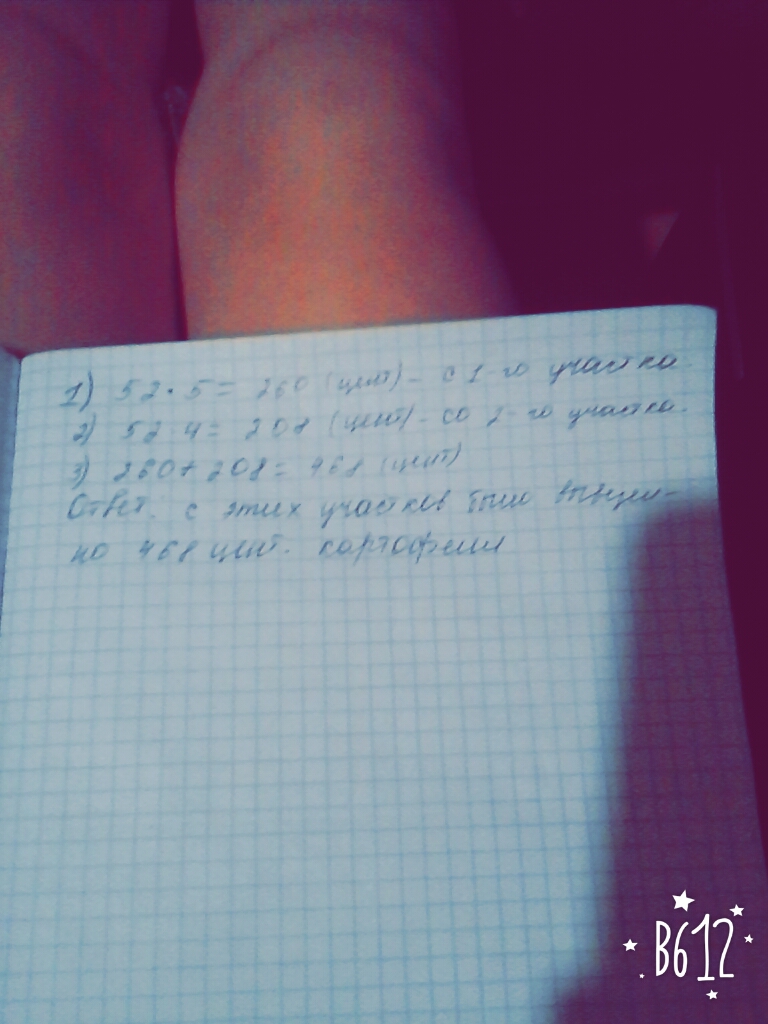 1) 52·5= 260 (цент) - с 1-го участка.
2) 52·4= 208 (цент) - со 2-го участка.
3) 260+208= 468 (цент)
Ответ: с этих участков было
но 468 цент. картофеля
B612